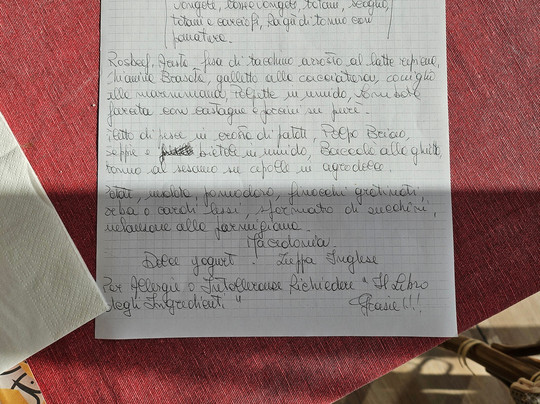 vongole, cozze vongole, totani, scoglio,
totani e carciofi, Ragù di tonno con
panature.
Rosbeef, Arista, fesa di tacchino arrosto al latte ripieni,
Chianina Brasata, galletto alla cacciatora, coniglio
alla maremmana, Polpette in umido,
farcita con castagne e porcini su purè.
filetto di pesce in crosta di patate, Polpo Briaco,
seppie e bietole in umido, Baccalà alla ghiotta,
tonno al sesamo su cipolle in agrodolce.
Patate, insalata pomodoro, finocchi gratinati,
erba o cardi lessi, sformatro di zucchini,
melanzane alla parmigiana.
Macedonia
Dolce yogurt. Zuppa Inglese
Per Allergie o Intolleranze Richiedere "Il Libro
degli Ingredienti" Grazie!!!